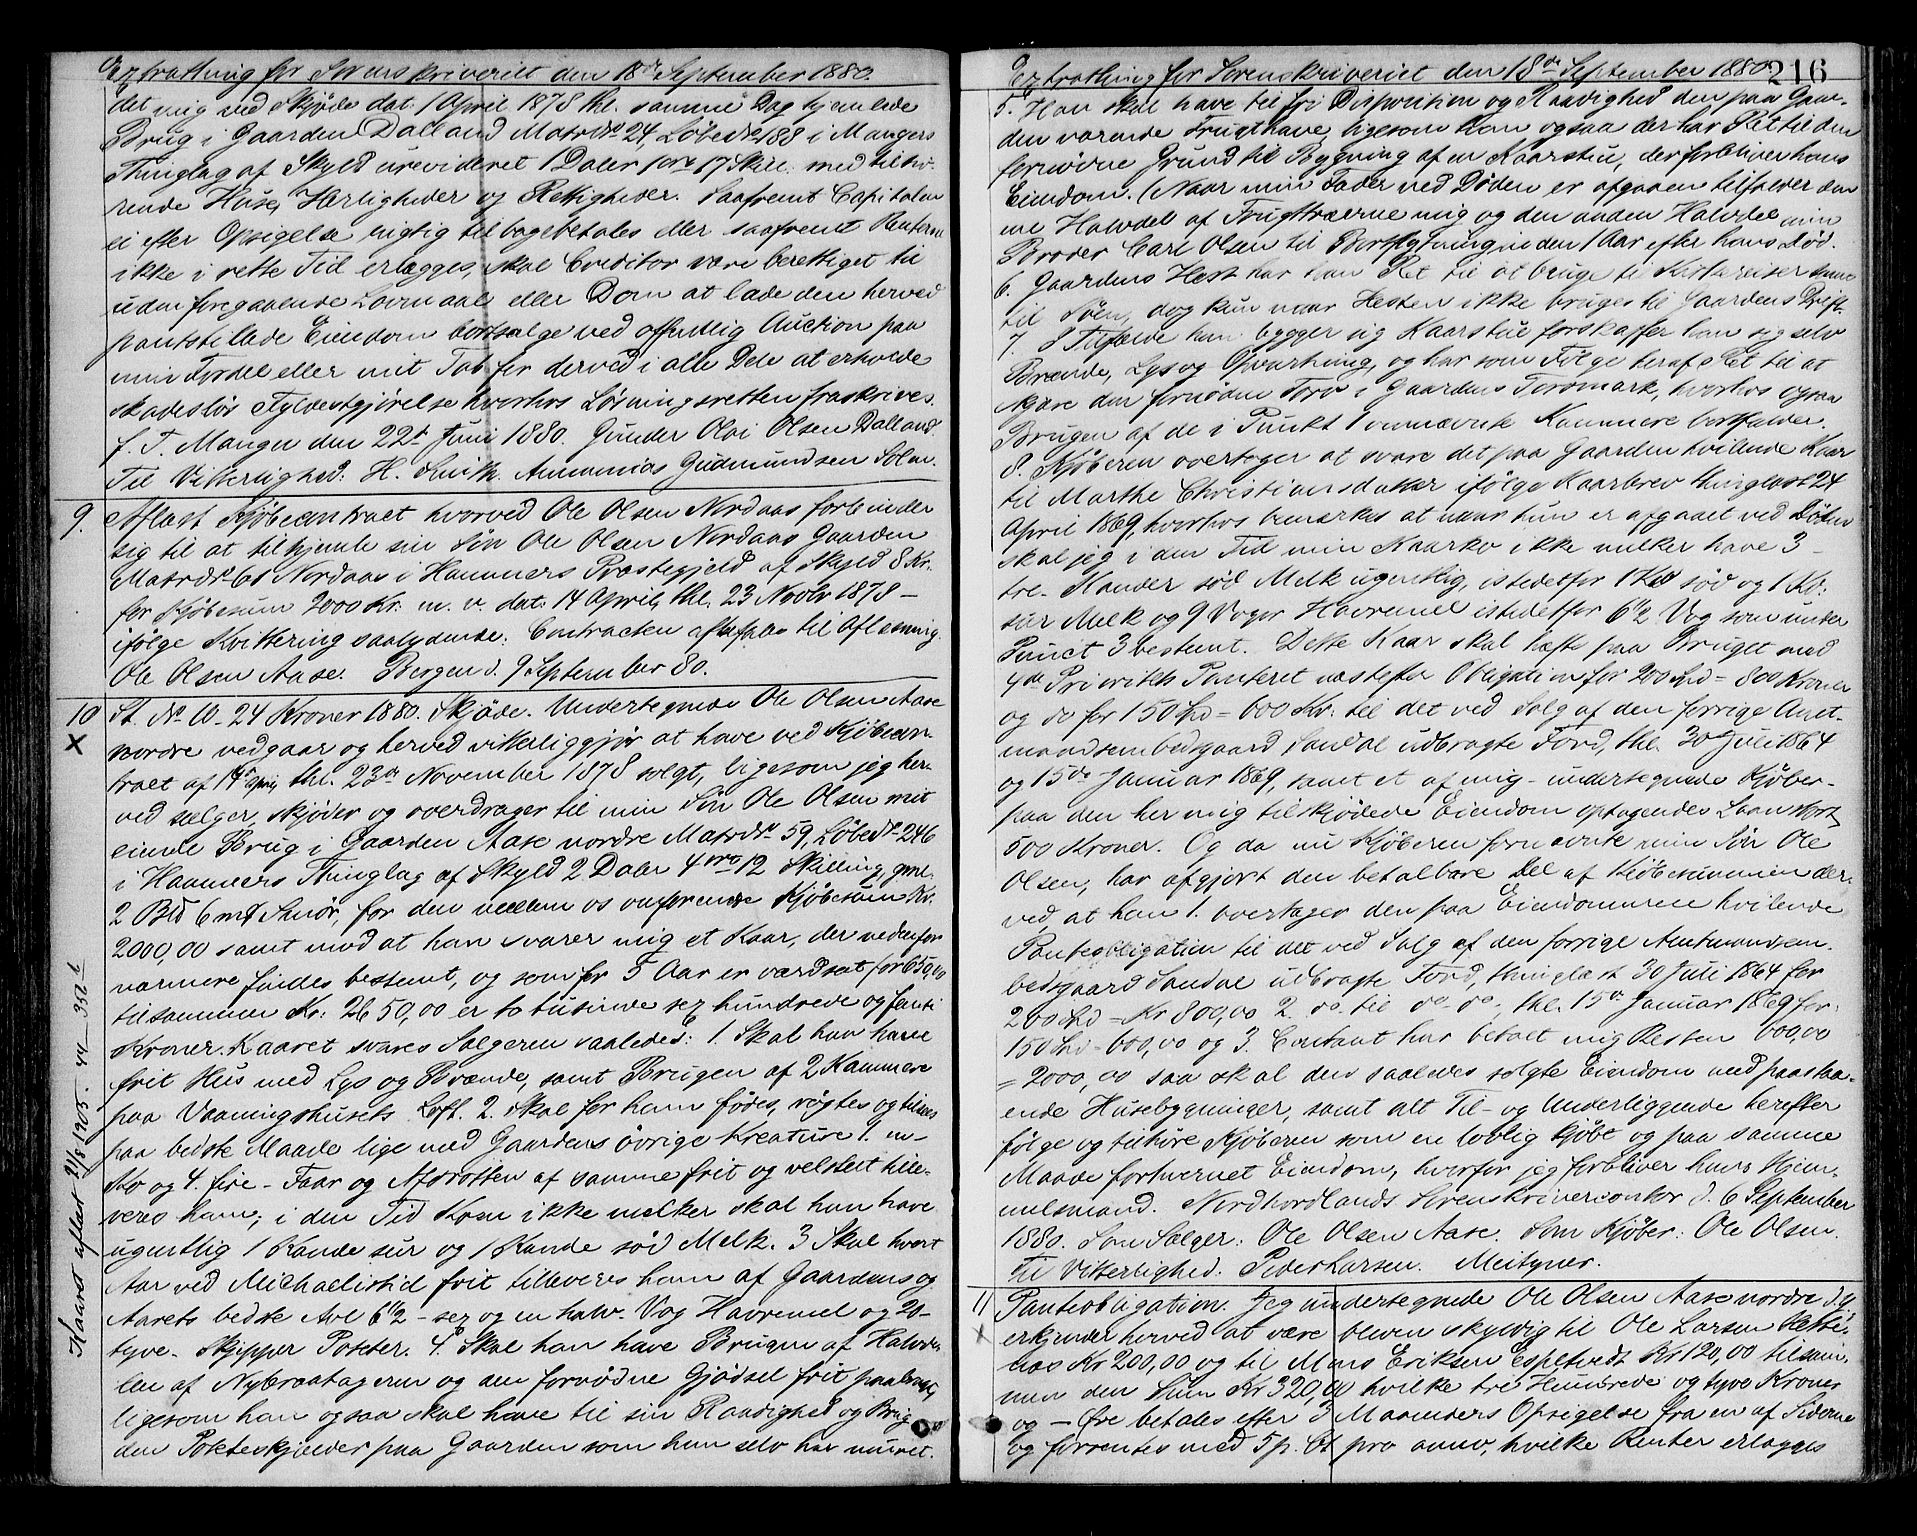 Extratthing for Sorenskriveriet den 18de September 1880.
det mig ved Skjøde dat. 1 April 1878 thl. samme Dag hjemlede
Brug i Gaarden Dalland Matr. Nr 24, Løbe Nr 188 i Mangers
Thinglag af Skyld urevideret 1 Daler 1 ort 17 Skill. med tilhø-
rende Huse, Herligheder og Rettigheder. Saafremt Capitalen
ei efter Opsigelse rigtig tilbagebetales eller saafremt Renterne
ikke i rette Tid erlægges, skal Creditor være berettiget til
uden foregaaende Lovmaal eller Dom at lade den herved
pantstillede Eiendom bortsælge ved offentlig Auction paa
min Fordel eller mit Tab for derved i alle Dele at erholde
skadesløs Fyldestgjørelse hvorhos Løsningsretten fraskrives.
f. T. Manger den 22de Juni 1880. Gunder Olai Olsen Dalland.
Til Vitterlighed: H. Smith. Annanias Gudmundsen Solm.
9. Aflæst Kjøbecontract hvorved Ole Olsen Nordaas forbinder
sig til at tilhjemle sin Søn Ole Olsen Nordaas Gaarden
Matr. Nr 60 Nordaas i Hammers Præstegjeld af Skyld 8 Kr.
for Kjøbesum 2000 Kr. m. v. dat. 14 April, thl. 23 Novbr 1878 –
ifølge Kvittering saalydende: Contracten aftales til Aflæsning.
Ole Olsen Aase. Bergen d. 9 September 80.
10 St. No 10 – 24 Kroner 1880. Skjøde. Undertegnede Ole Olsen Aase
X nordre vedgaar og herved vitterliggjør at have ved Kjøbecon-
tract af 14de April, thl. 23de November 1878 solgt, ligesom jeg her-
ved sælger, skjøder og overdrager til min Søn Ole Olsen mit
eiende Brug i Gaarden Aase nordre Matr. Nr 59, Løbe Nr 246
i Haamers Thinglag af Skyld 2 Daler 4 ort 12 Skilling, gml.
2 Bld 6 mk Smør, for den mellem os omforenede Kjøbesum Kr.
2000,00 samt mod at han svarer mig et Kaar, der nedenfor
nærmere findes bestemt, og som for 5 Aar er værdsat for 650,00
tilsammen Kr: 2650,00 er to tusinde sex hundrede og femti
Kroner. Kaaret svares Sælgeren saaledes: 1. Skal han have
frit Hus med Lys og Brænde, samt Brugen af 2 Kammere
paa Vaaningshusets Loft. 2. Skal for ham fødes, røgtes og tilsees
paa bedste Maade lige med Gaardens øvrige Kreature 1. en –
Ko og 4. fire – Faar og Afdrotten af samme frit og velstelt tille-
veres ham, i den Tid Koen ikke melker skal han have
ugentlig 1 Kande sur og 1 Kande sød Melk. 3 Skal hvert
Aar ved Michaelistid frit tilleveres ham af Gaardens og
Aarets bedste Avl 6 1/2 – sex og en halv – Vog Havremel og 20 –
tyve – Skjepper Poteter. 4. Skal han have Brugen af Halvde-
len af Nybrotageren og den fornødne Gjødsel frit paabragt,
ligesom han ogsaa skal have til sin Raadighed og Brug
den Potetskjelder paa Gaarden som han selv har muret.
Kaaret aflæst 21/8 1905. 44 – 352 b
Extratthing for Sorenskriveriet den 18de September 1880. 216
5. Han skal have til fri Disposition og Raadighed den paa Gaar-
den værende Frugthave, ligesom han ogsaa der har Ret til den
fornødne Grund til Bygning af en Kaarstue, der forbliver hans
Eiendom. (Naar min Fader ved Døden er afgaaen tilfalder den
ene Halvdel af Frugttræerne mig og den anden Halvdel min
Broder Carl Olsen til Bortflytning inden 1 Aar efter hans Død.
6. Gaardens Hest har han Ret til at bruge til Kirkereiser samt
til Søen, dog kun naar Hesten ikke bruges til Gaardens Drift.
7. I Tilfælde han bygger sig Kaarstue forskaffer han sig selv
Brænde, Lys og Opvartning, og har som Følge heraf Ret til at
skjære den fornøden Torv i Gaardens Torvmark, hvorhos ogsaa
Brugen af de i Punkt 1 omnævnte Kammere bortfalder.
8. Kjøberen overtager at svare det paa Gaarden hvilende Kaar
til Marthe Christiansdatter ifølge Kaarbrev thinglæst 24
April 1869, hvorhos bemærkes at naar hun er afgaaet ved Døden
skal jeg i den Tid min Kaarko ikke melker have 3 –
tre – Kander sød Melk ugentlig, istedetfor 1 Kd sød og 1 Kd.
sur Melk og 9 Voger Havremel istedetfor 6 1/2 Vog som under
Punct 3 bestemt. Dette Kaar skal hæfte paa Bruget med
4de Prioritets Panteret næstefter Obligation for 200 Spd = 800 Kroner
og do for 150 Spd = 600 Kr. til det ved Salg af den forrige Amt-
mandsembedsgaard Sandal udbragte Fond, thl. 30 Juli 1864
og 15de Januar 1869, samt et af mig – undertegnede Kjøber –
paa den her mig tilskjødede Eiendom optagendes Laan stort
500 Kroner. Og da nu Kjøberen fornævnte min Søn Ole
Olsen, har afgjort den betalbare Del af Kjøbesummen der-
ved, at han 1. overtager den paa Eiendommen hvilende
Panteobligation til det ved Salg af den forrige Amtmandsem-
bedsgaard Sandal udbragte Fond, thinglæst 30 Juli 1864 for
200 Spd = Kr 800,00 2. do til do – do, thl. 15de Januar 1869 for
150 Spd – 600,00 og 3. Contant har betalt mig Resten 600,00
= 2000,00 saa skal den saaledes solgte Eiendom med paastaa-
ende Husebygninger, samt alt Til- og Underliggende herefter
følge og tilhøre Kjøberen som en lovlig kjøbt og paa samme
Maade forhvervet Eiendom, hvorfor jeg forbliver hans Hjem-
melsmand. Nordhordlands Sorenskrivercontor d. 6 September
1880. Som Sælger: Ole Olsen Aase. Som Kjøber: Ole Olsen.
Til Vitterlighed: Peder Larsen. Meitzner.
11 Panteobligation. Jeg undertegnede Ole Olsen Aase nordre d. y.
X erkjender herved at være bleven skyldig til Ole Larsen
Kr 200,00 og til Mons Eriksen Espeltvedt Kr 120,00 tilsam-
men den Sum Kr 320,00 hvilke tre Hundrede og tyve Kroner
og – Øre betales efter 3 Maaneders Opsigelse fra en af Siderne
og forrentes med 5 p. Ct. pro anno, hvilke Renter erlægges